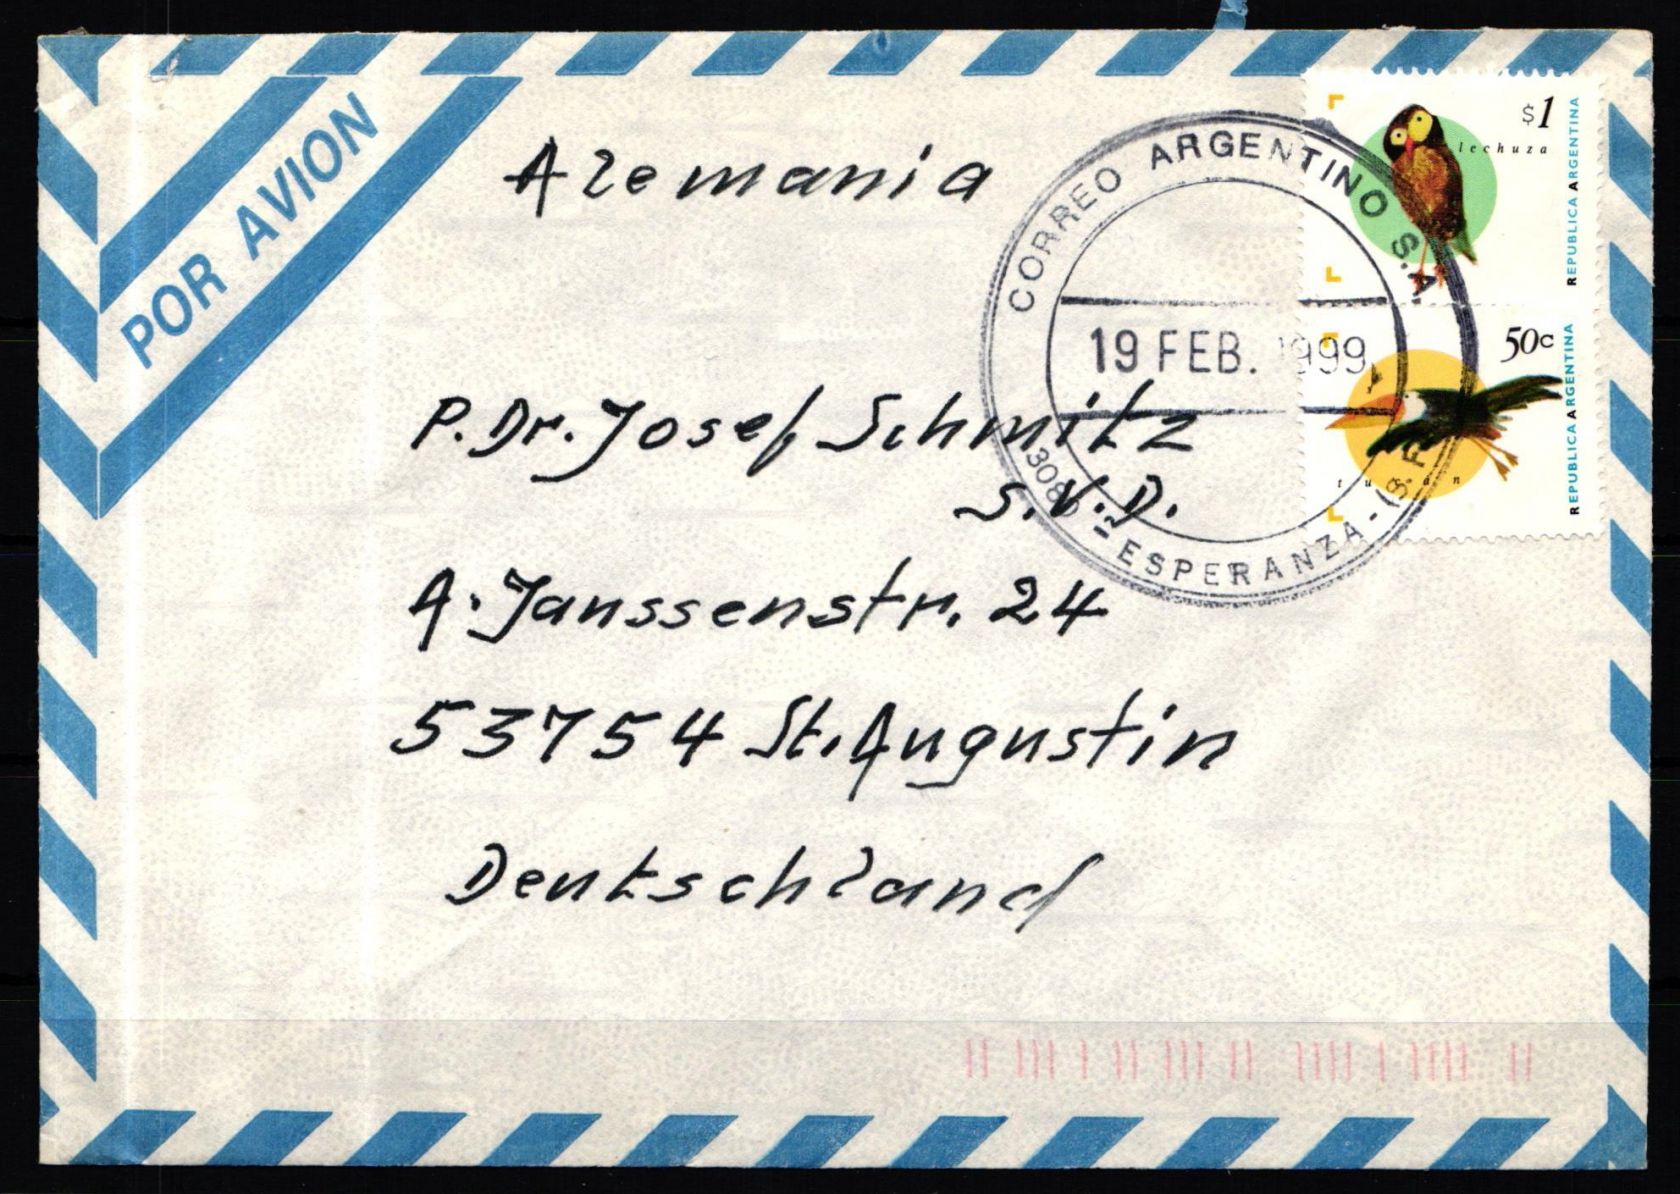 POR AVION
Alemania
$1
lechuza
REPUBLICA ARGENTINA
CORREO ARGENTINO S.A.
19 FEB. 1999
50c
tucán
REPUBLICA ARGENTINA
P. Dr. Josef Schmitz
S.V.D.
ESPERANZA - (S. F.
A. Janssenstr. 24
53754 St. Augustin
Deutschland